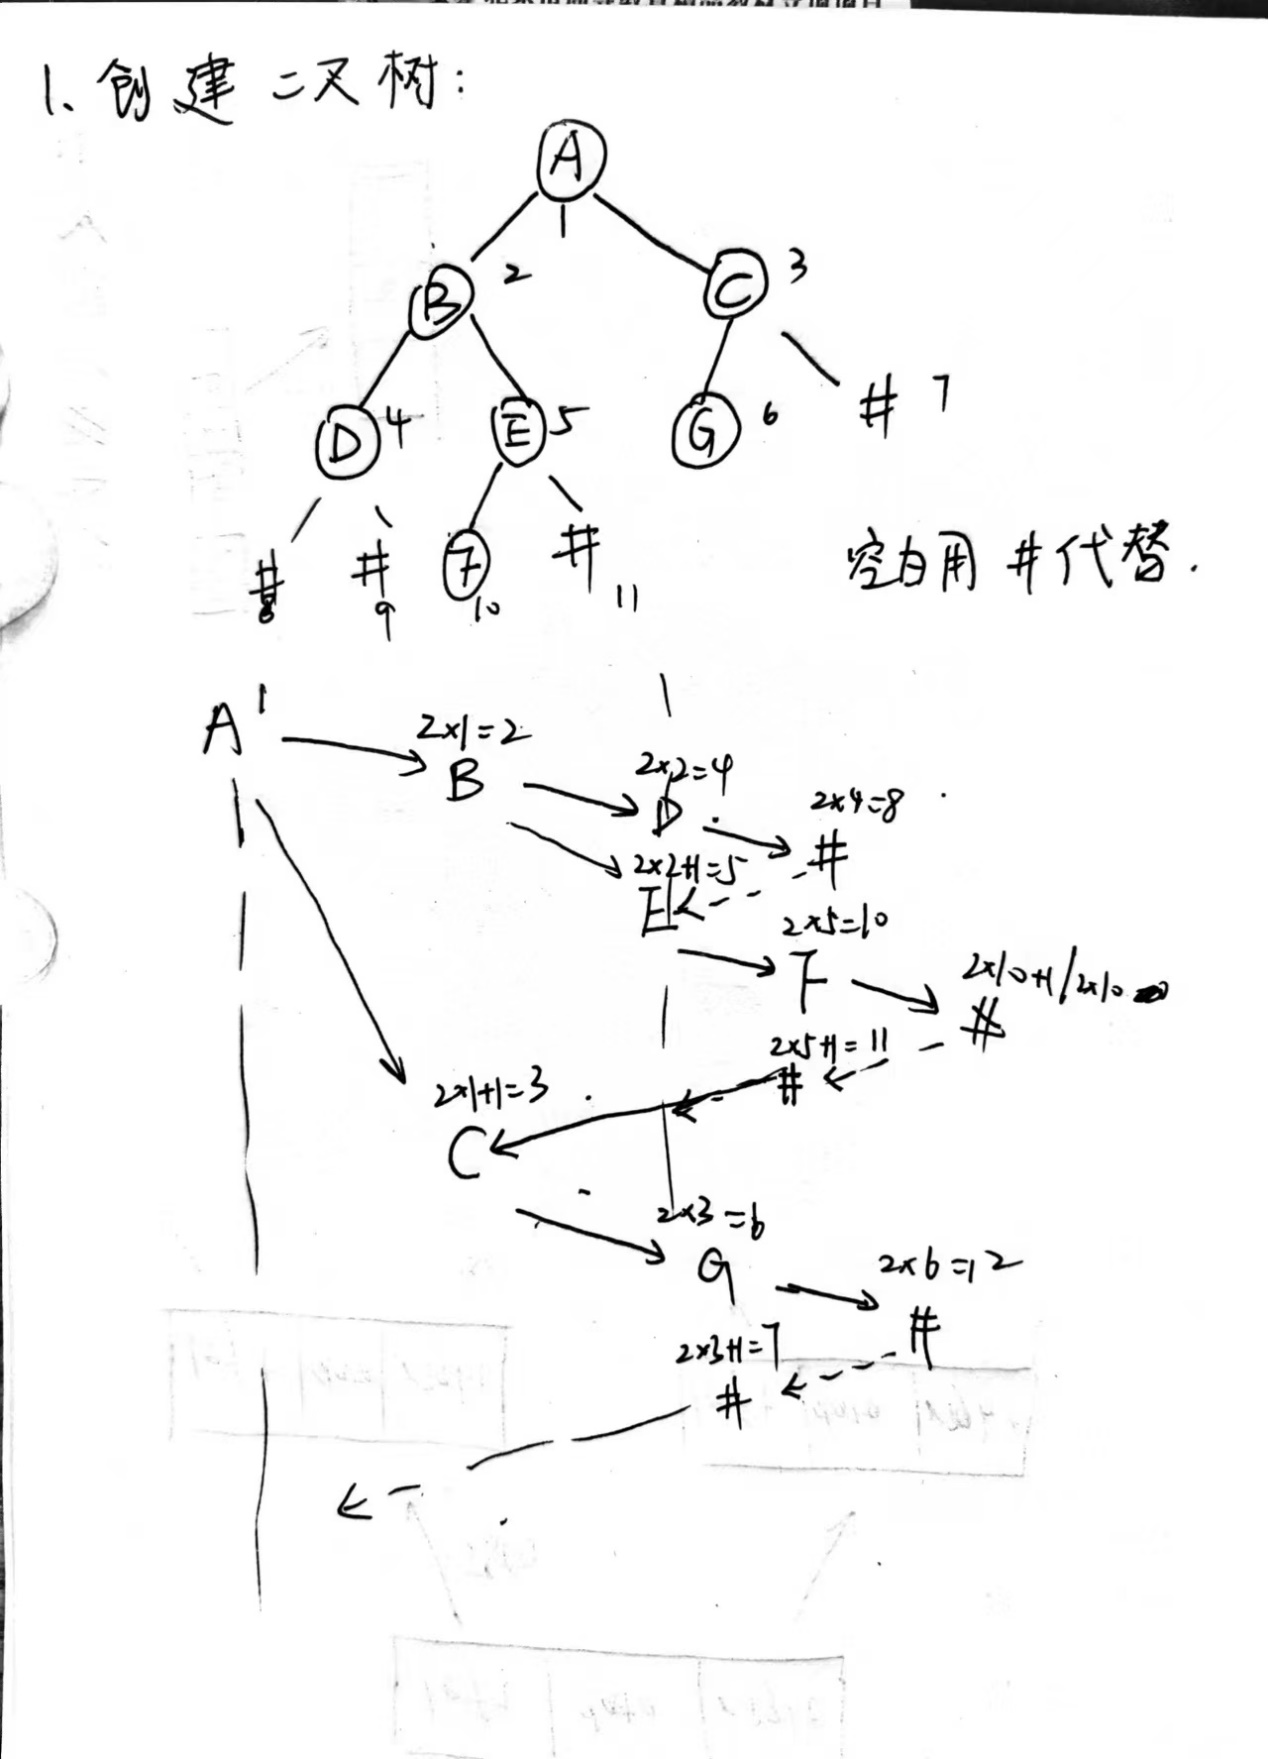 1、创建二叉树:
A
1
B 2 C 3
D 4 E 5 G 6 # 7
# # F #
8 9 10 11
空白用#代替.
A 1
2×1=2
B
2×2=4
D
2×4=8
#
2×2+1=5
E
2×5=10
F
2×10+1/2×10
#
2×5+1=11
#
2×1+1=3
C
2×3=6
G
2×6=12
#
2×3+1=7
#